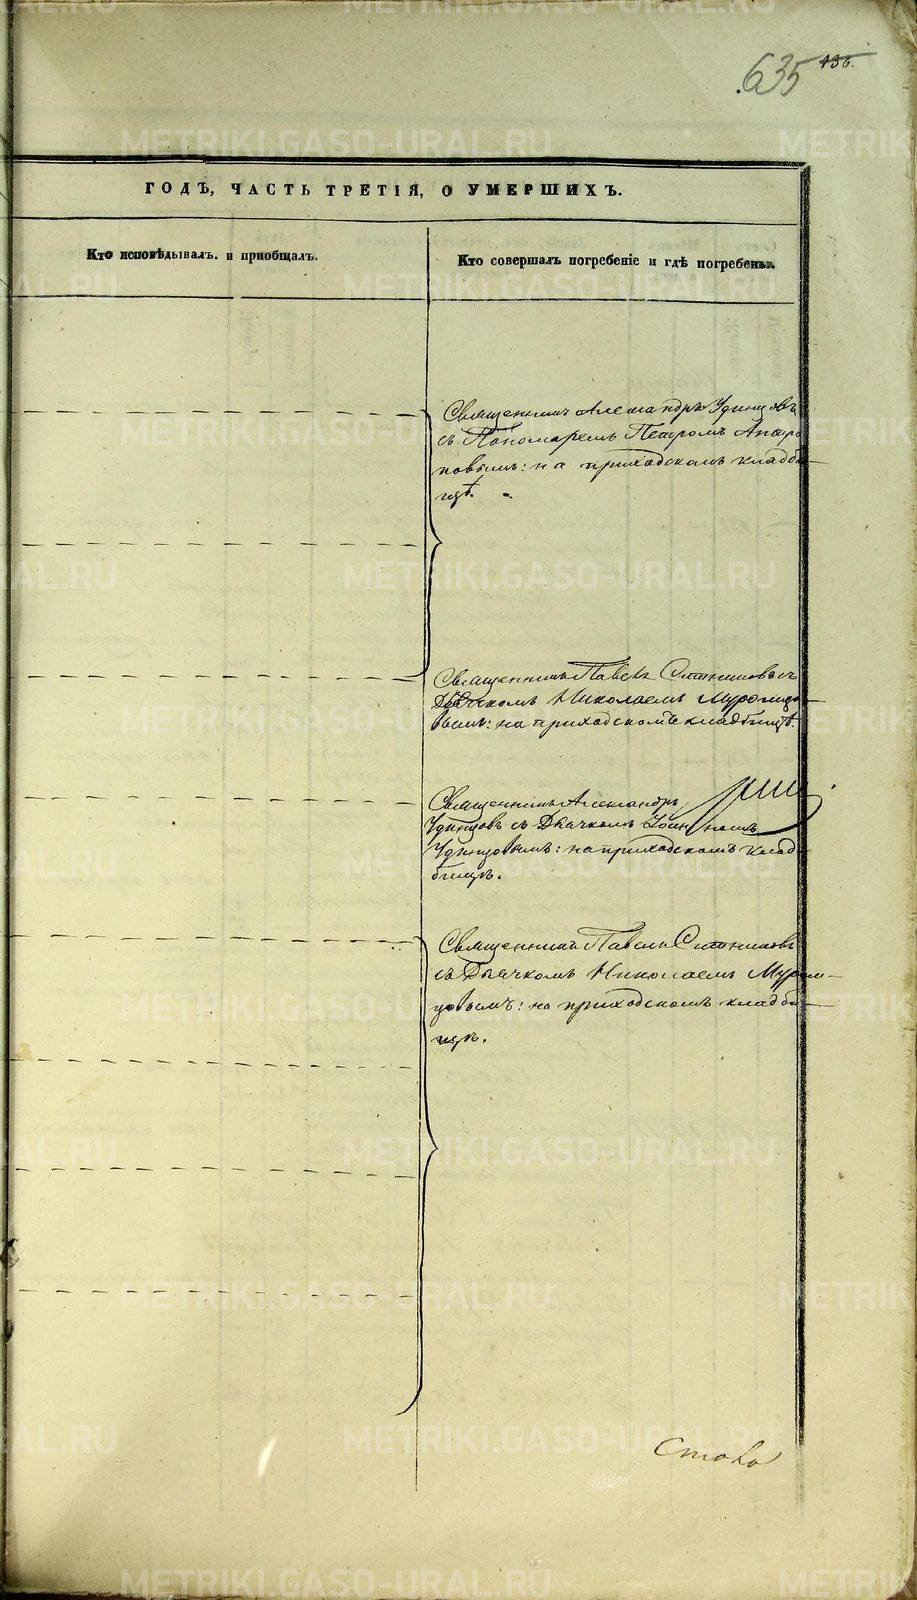 635 436.
ГОДЪ, ЧАСТЬ ТРЕТІЯ, О УМЕРШИХЪ.
Кто исповѣдывалъ. и приобщалъ.
Кто совершалъ погребеніе и гдѣ погребены.
Священникъ Александръ Удинцовъ
съ Пономаремъ Петромъ
повымъ: на приходскомъ кладби-
щѣ.
Священникъ Павелъ съ
Дьячкомъ Николаемъ
вымъ: на приходскомъ кладбищѣ.
Священникъ Александръ
Удинцовъ съ Дьячкомъ Іоанномъ
Удинцовымъ: на приходскомъ клад-
бищѣ.
Священникъ Павелъ
съ Дьячкомъ Николаемъ
цовымъ: на приходскомъ кладби-
щѣ.
METRIKI.GASO-URAL.RU